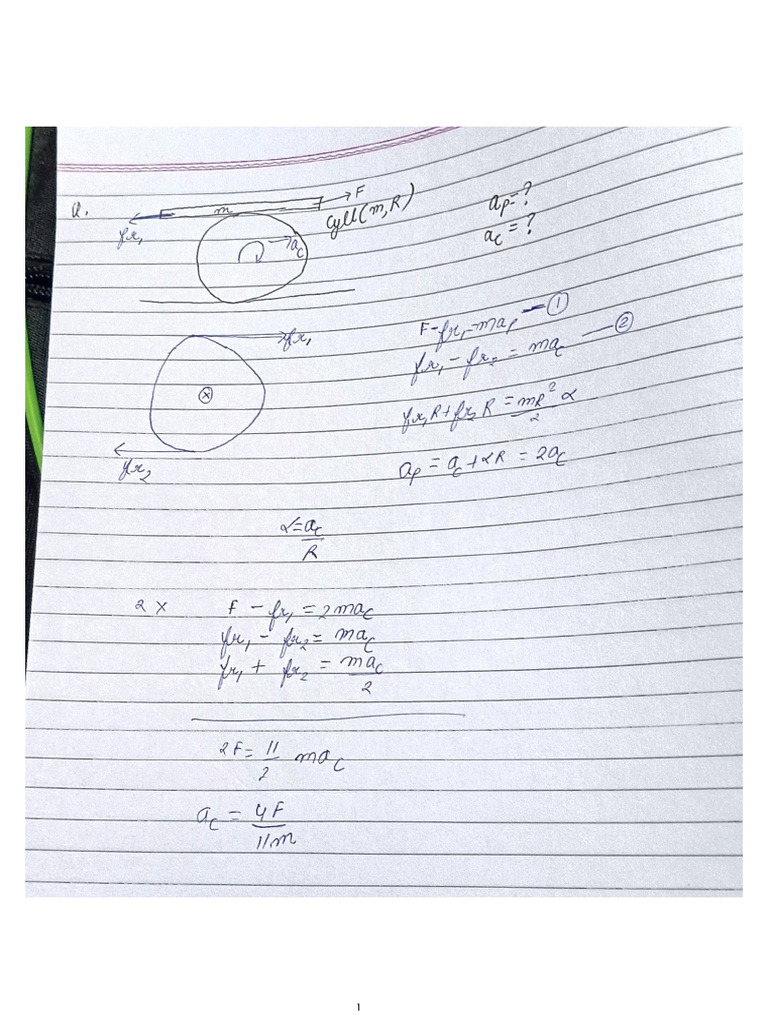 Q. m F
fr₁ Cyll(m,R) aₚ=?
a_c a_c=?
fr₁ F-fr₁=maₚ — ①
fr₁ - fr₂ = ma_c — ②
x
fr₁R+fr₂R = mR²/2 α
fr₂ aₚ = a_c + αR = 2a_c
α = a_c/R
2 x F - fr₁ = 2ma_c
fr₁ - fr₂ = ma_c
fr₁ + fr₂ = ma_c/2
2F = 11/2 ma_c
a_c = 4F/11m
1